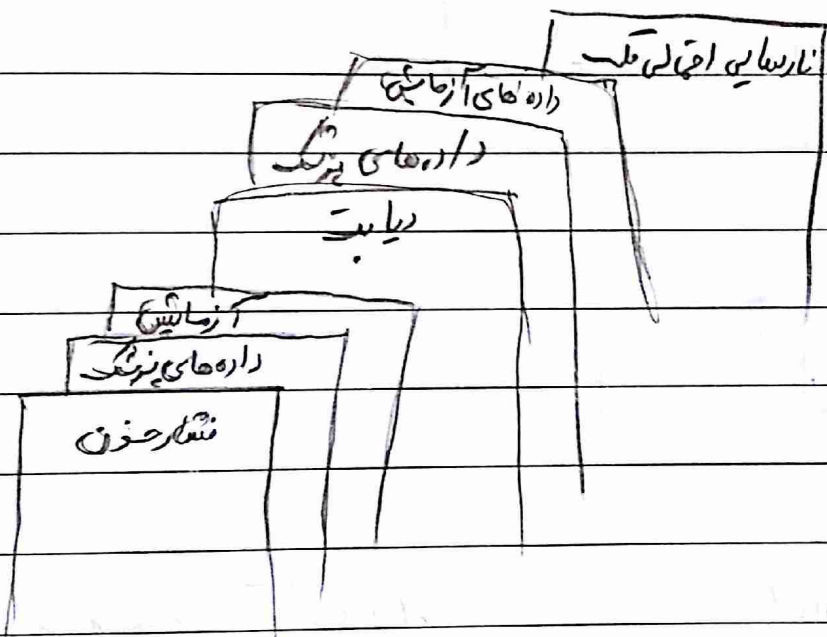 نارسایی احتمالی قلب
داده‌های آزمایش
داده‌های پزشک
دیابت
آزمایش
داده‌های پزشک
فشار خون